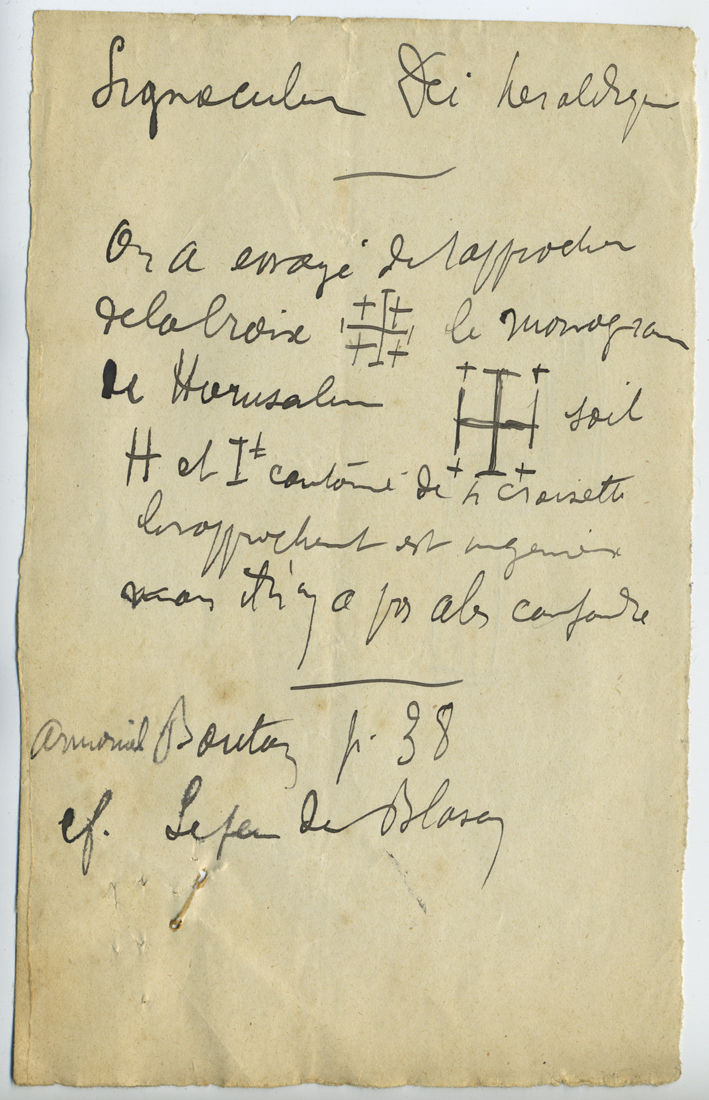 Signaculum Dei heraldique
On a essayé de rapprocher
de la Croix le monogram
de Hierusalem soit
H et I cantonné de 4 croisette
le rapprochemt est ingenieux
mais il n'y a pas a les confondre
armorial Bouton p. 38
cf. de Blason